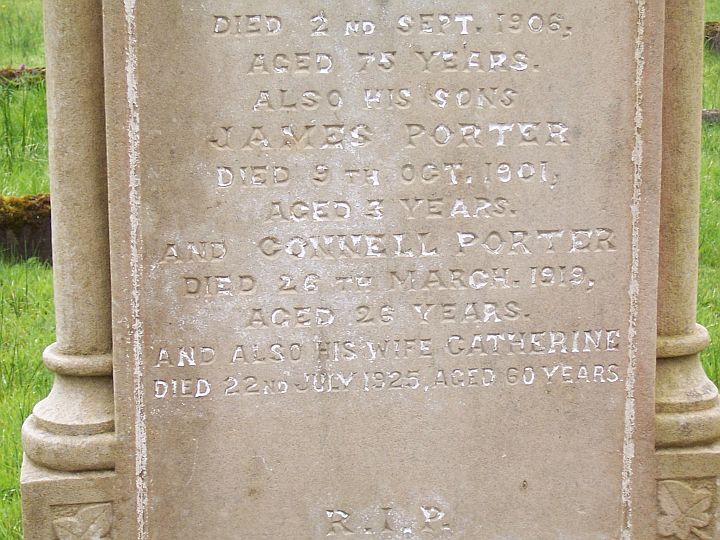 DIED 2ND SEPT. 1906,
AGED 75 YEARS.
ALSO HIS SONS
JAMES PORTER
DIED 9TH OCT. 1901,
AGED 3 YEARS.
AND CONNELL PORTER
DIED 26TH MARCH. 1919,
AGED 26 YEARS.
AND ALSO HIS WIFE CATHERINE
DIED 22ND JULY 1925, AGED 60 YEARS.
R.I.P.